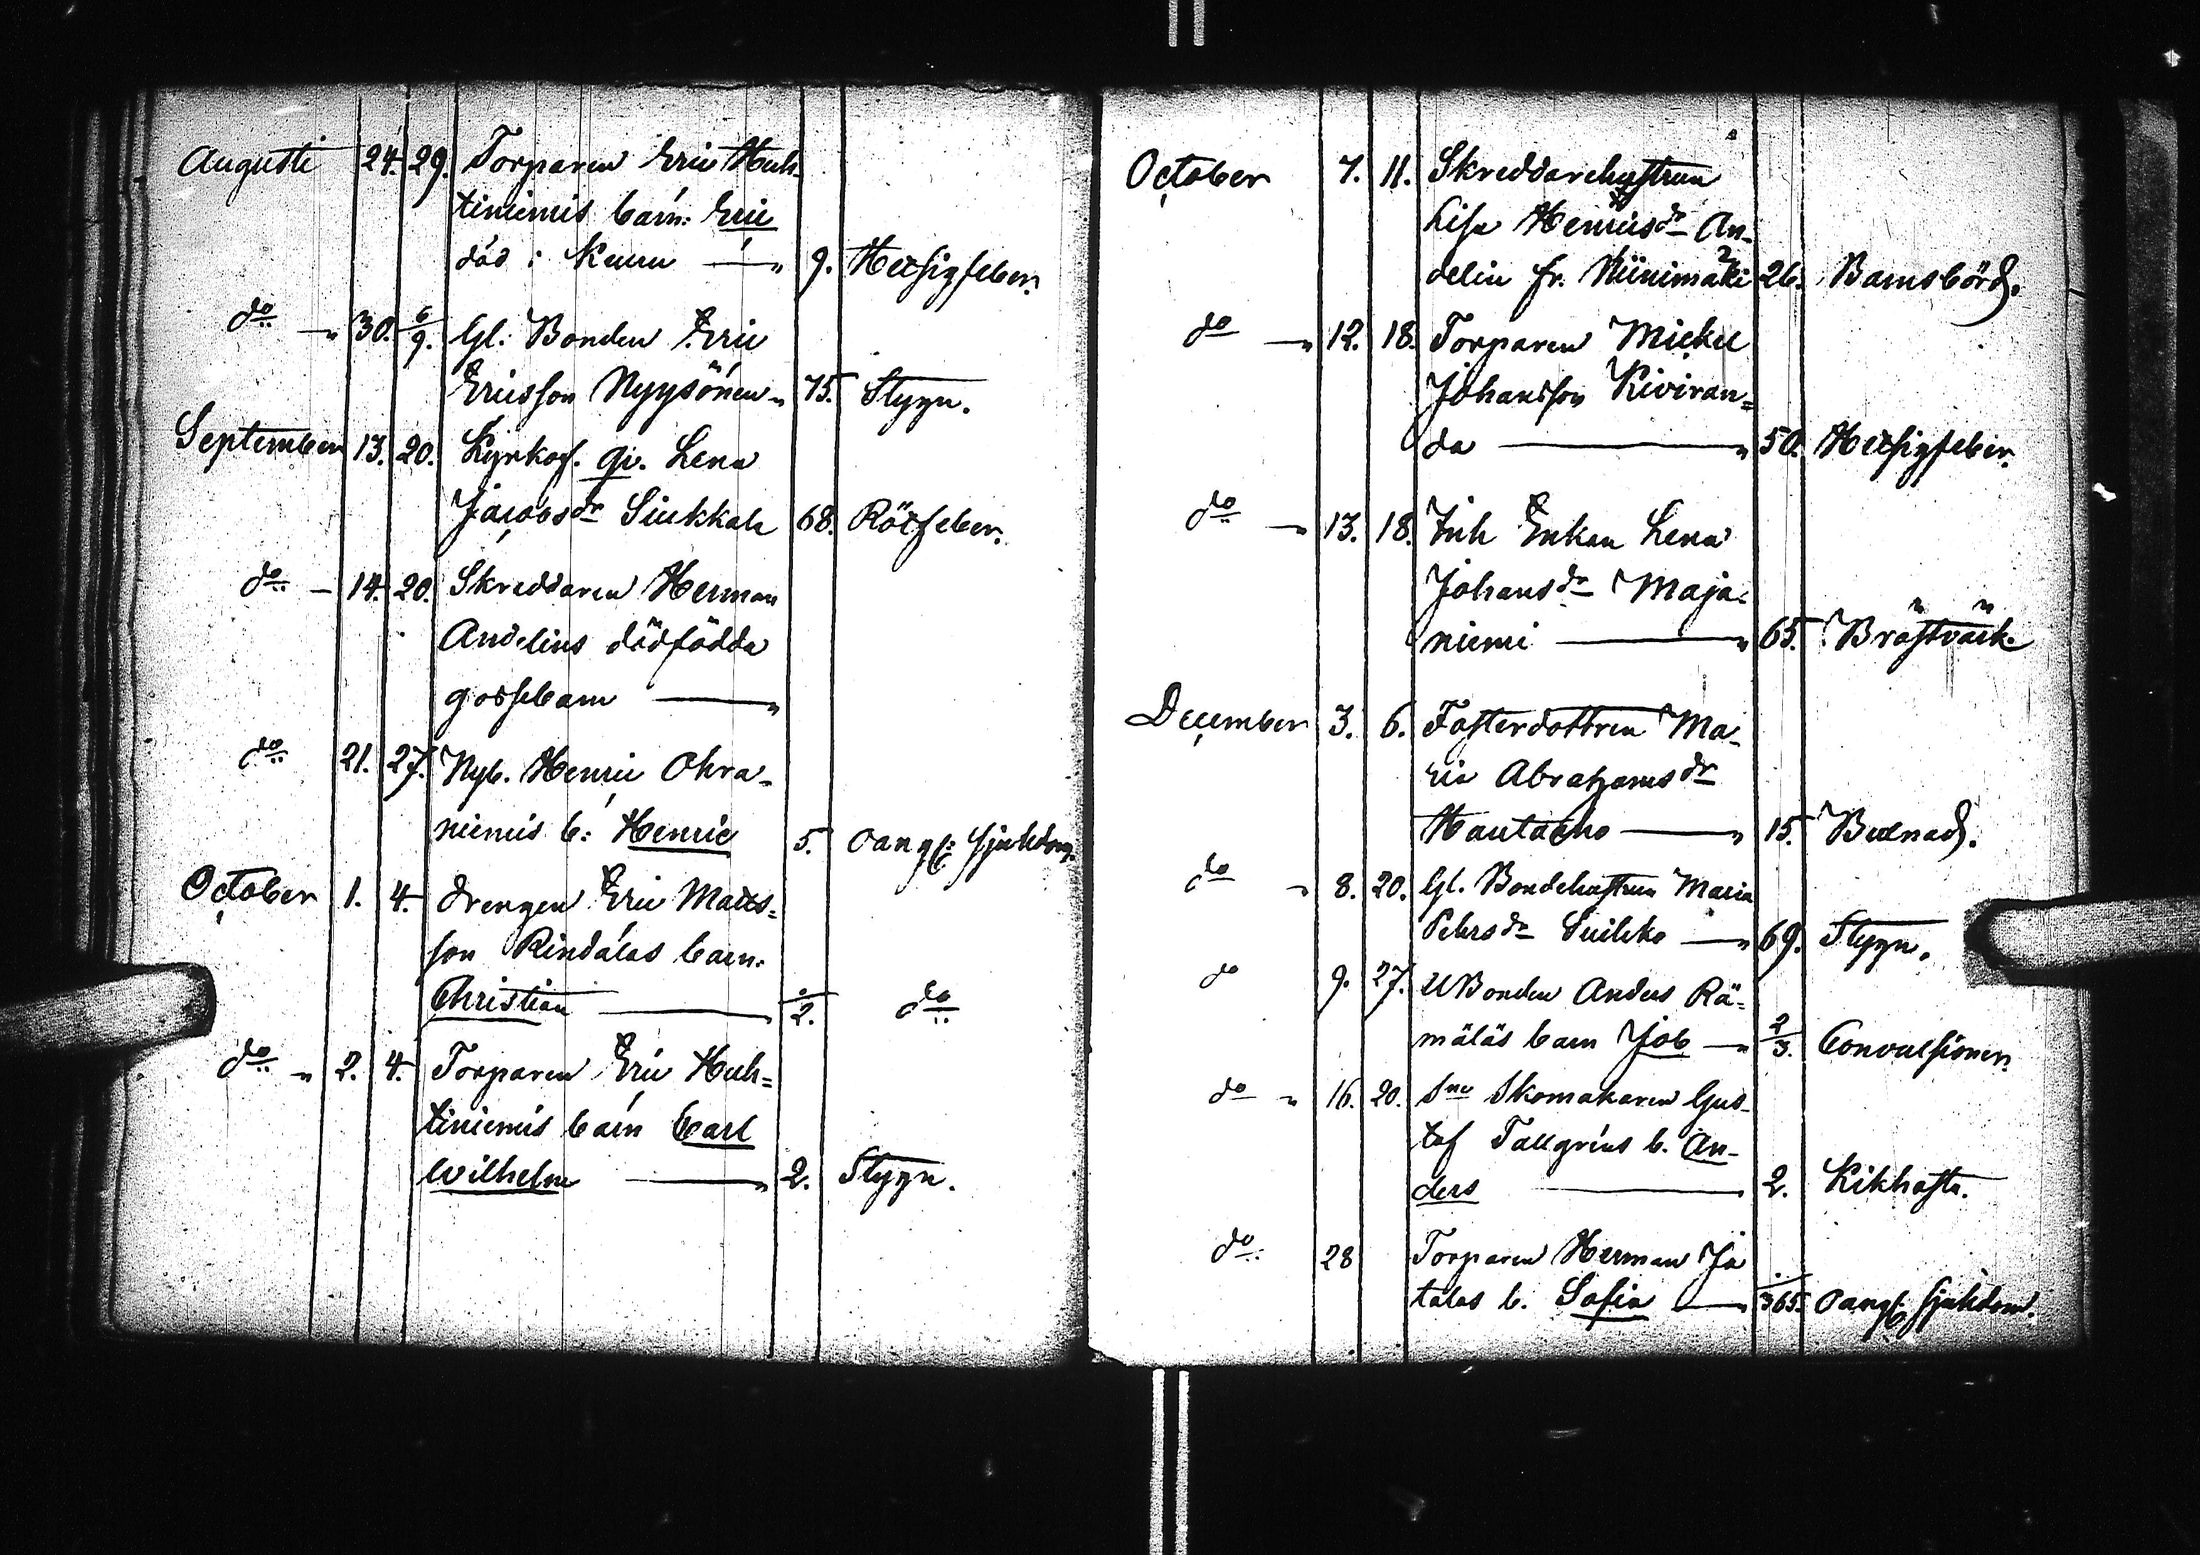 Augusti 24. 29. Torparen Eric Huh-
tiniemis barn: Eric
död i Keuru — " 9. Hetsigfeber.
do " 30. 6/9. Gl. Bonden Eric
Ericsson Nyysönen " 75. Stygn.
September 13. 20. Kyrkof. gi. Lena
Jacobsdr Siukkola 68. Rötfeber.
do — 14. 20. Skreddaren Herman
Andelins dödfödda
gossebarn — "
do 21. 27. Nyb. Henric Ohra-
niemis b: Henric 5. Oangf: sjukdom.
October 1. 4. Drengen Eric Matts=
son Rindalas barn:
Christian — 1/2. do
do " 2. 4. Torparen Eric Huh=
tiniemis barn Carl
Wilhelm — " 2. Stygn.
October 7. 11. Skreddarehustrun
Lisa Henricsdr An-
delin fr. Niinimäki 26. Barnsbörd.
do — " 12. 18. Torparen Mickel
Johansson Kiviran=
da — " 50. Hetsigfeber.
do — " 13. 18. Inh Enkan Lena
Johansdr Maja-
niemi — " 65. Bröstvärk
December 3. 6. Fosterdottren Ma-
ria Abrahamsdr
Hautaaho — " 15. Bulnad.
do " 8. 20. Gl. Bondehustrun Maria
Pehrsdr — " 69. Stygn.
do 9. 27. UBonden Anders Rä-
mäläs barn Job — " 2/3. Convulsioner.
do " 16. 20. Sne Skomakaren Gus-
taf Tallgréns b. An-
ders — " 2. Kikhosta.
do 28 Torparen Herman Ja
talas b. Sofia — " 1/365. Oangf. sjukdom.